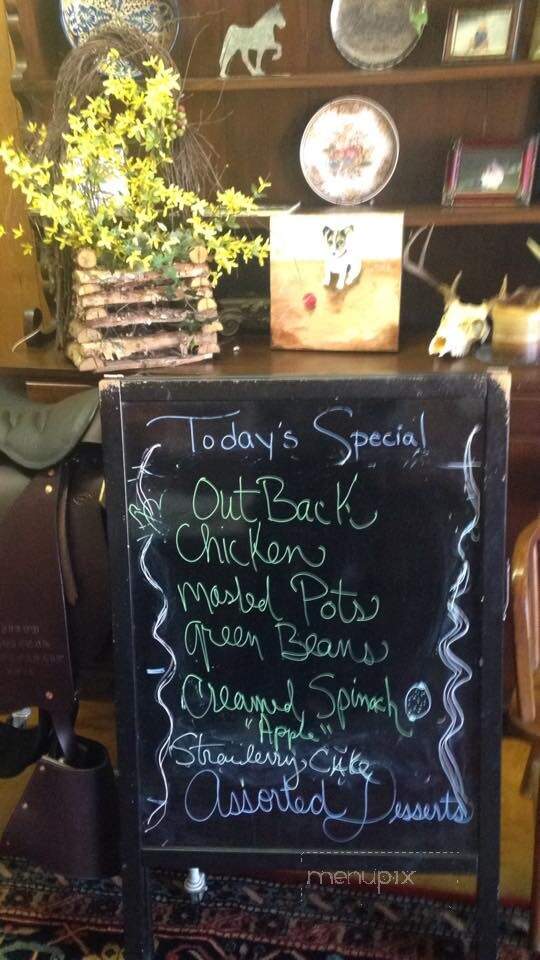 Today's Special
OutBack
Chicken
Mashed Pots
Green Beans
Creamed Spinach
"Apple"
Strawberry, Cake
Assorted Desserts
menupix